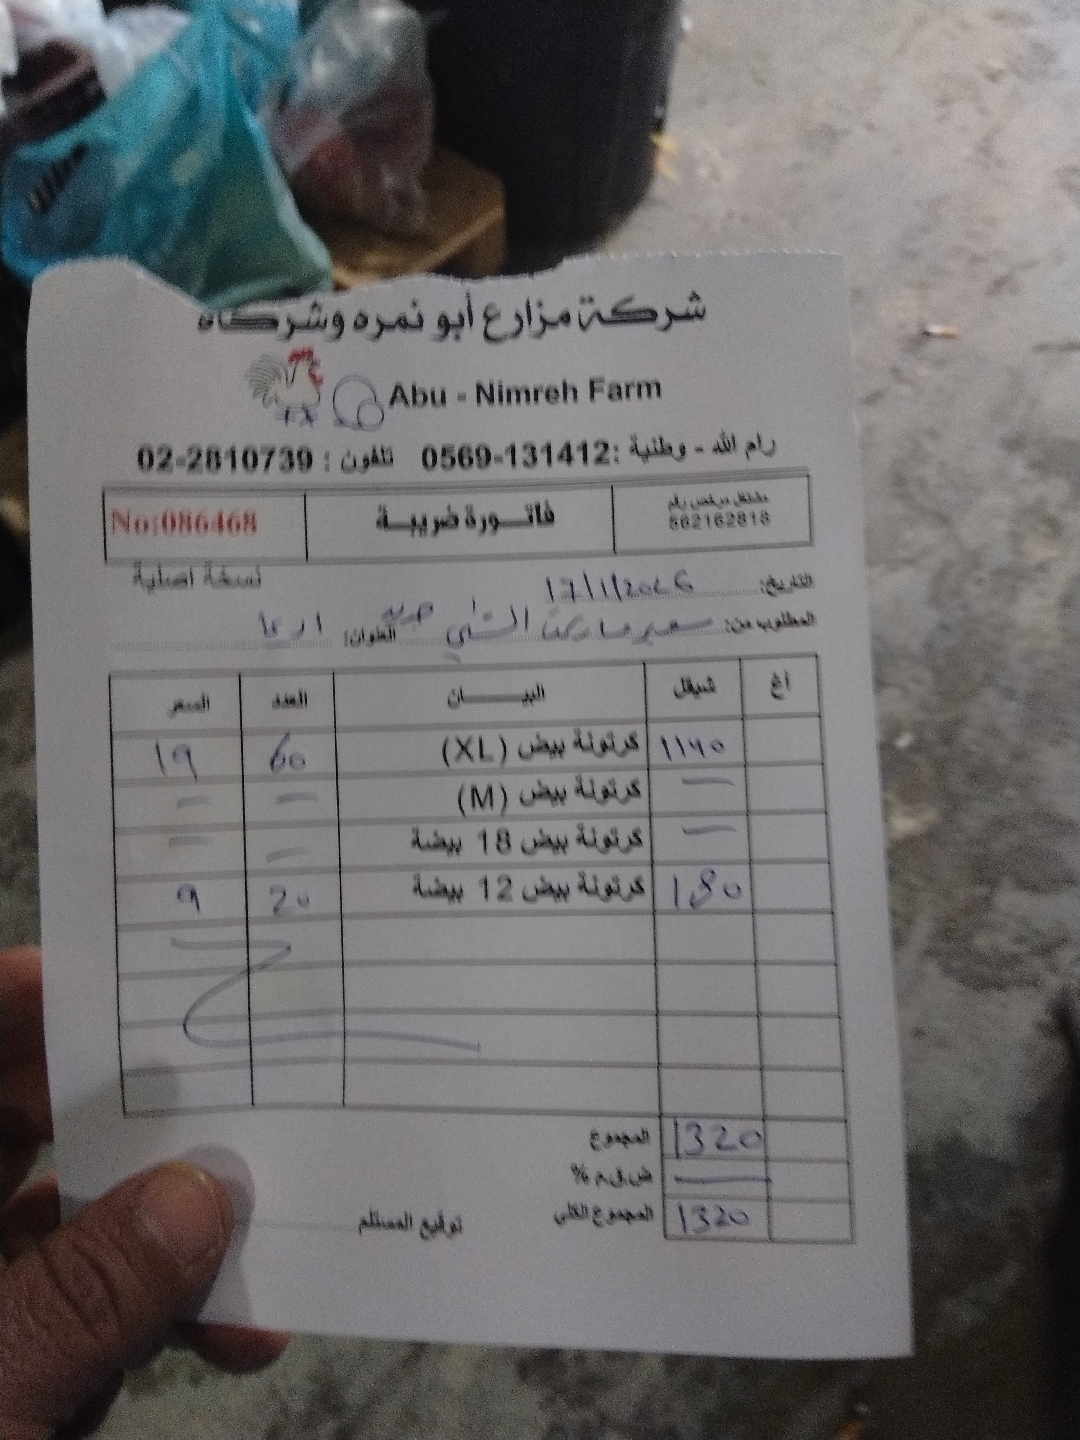 شركة مزارع أبو نمره وشركاه
Abu - Nimreh Farm
رام الله - وطنية : 0569-131412 تلفون : 02-2810739
مشتغل مرخص رقم
562162818
فاتـورة ضريبـة
No:086468
نسخة اصلية
التاريخ: 17/1/2026
المطلوب من: سوبر ماركت العنوان: اريحا
أغ شيقل البيـــان العدد السعر
1140 كرتونة بيض (XL) 60 19
— كرتونة بيض (M) — —
— كرتونة بيض 18 بيضة — —
180 كرتونة بيض 12 بيضة 20 9
المجموع 1320
ض.ق.م % —
المجموع الكلي 1320
توقيع المستلم